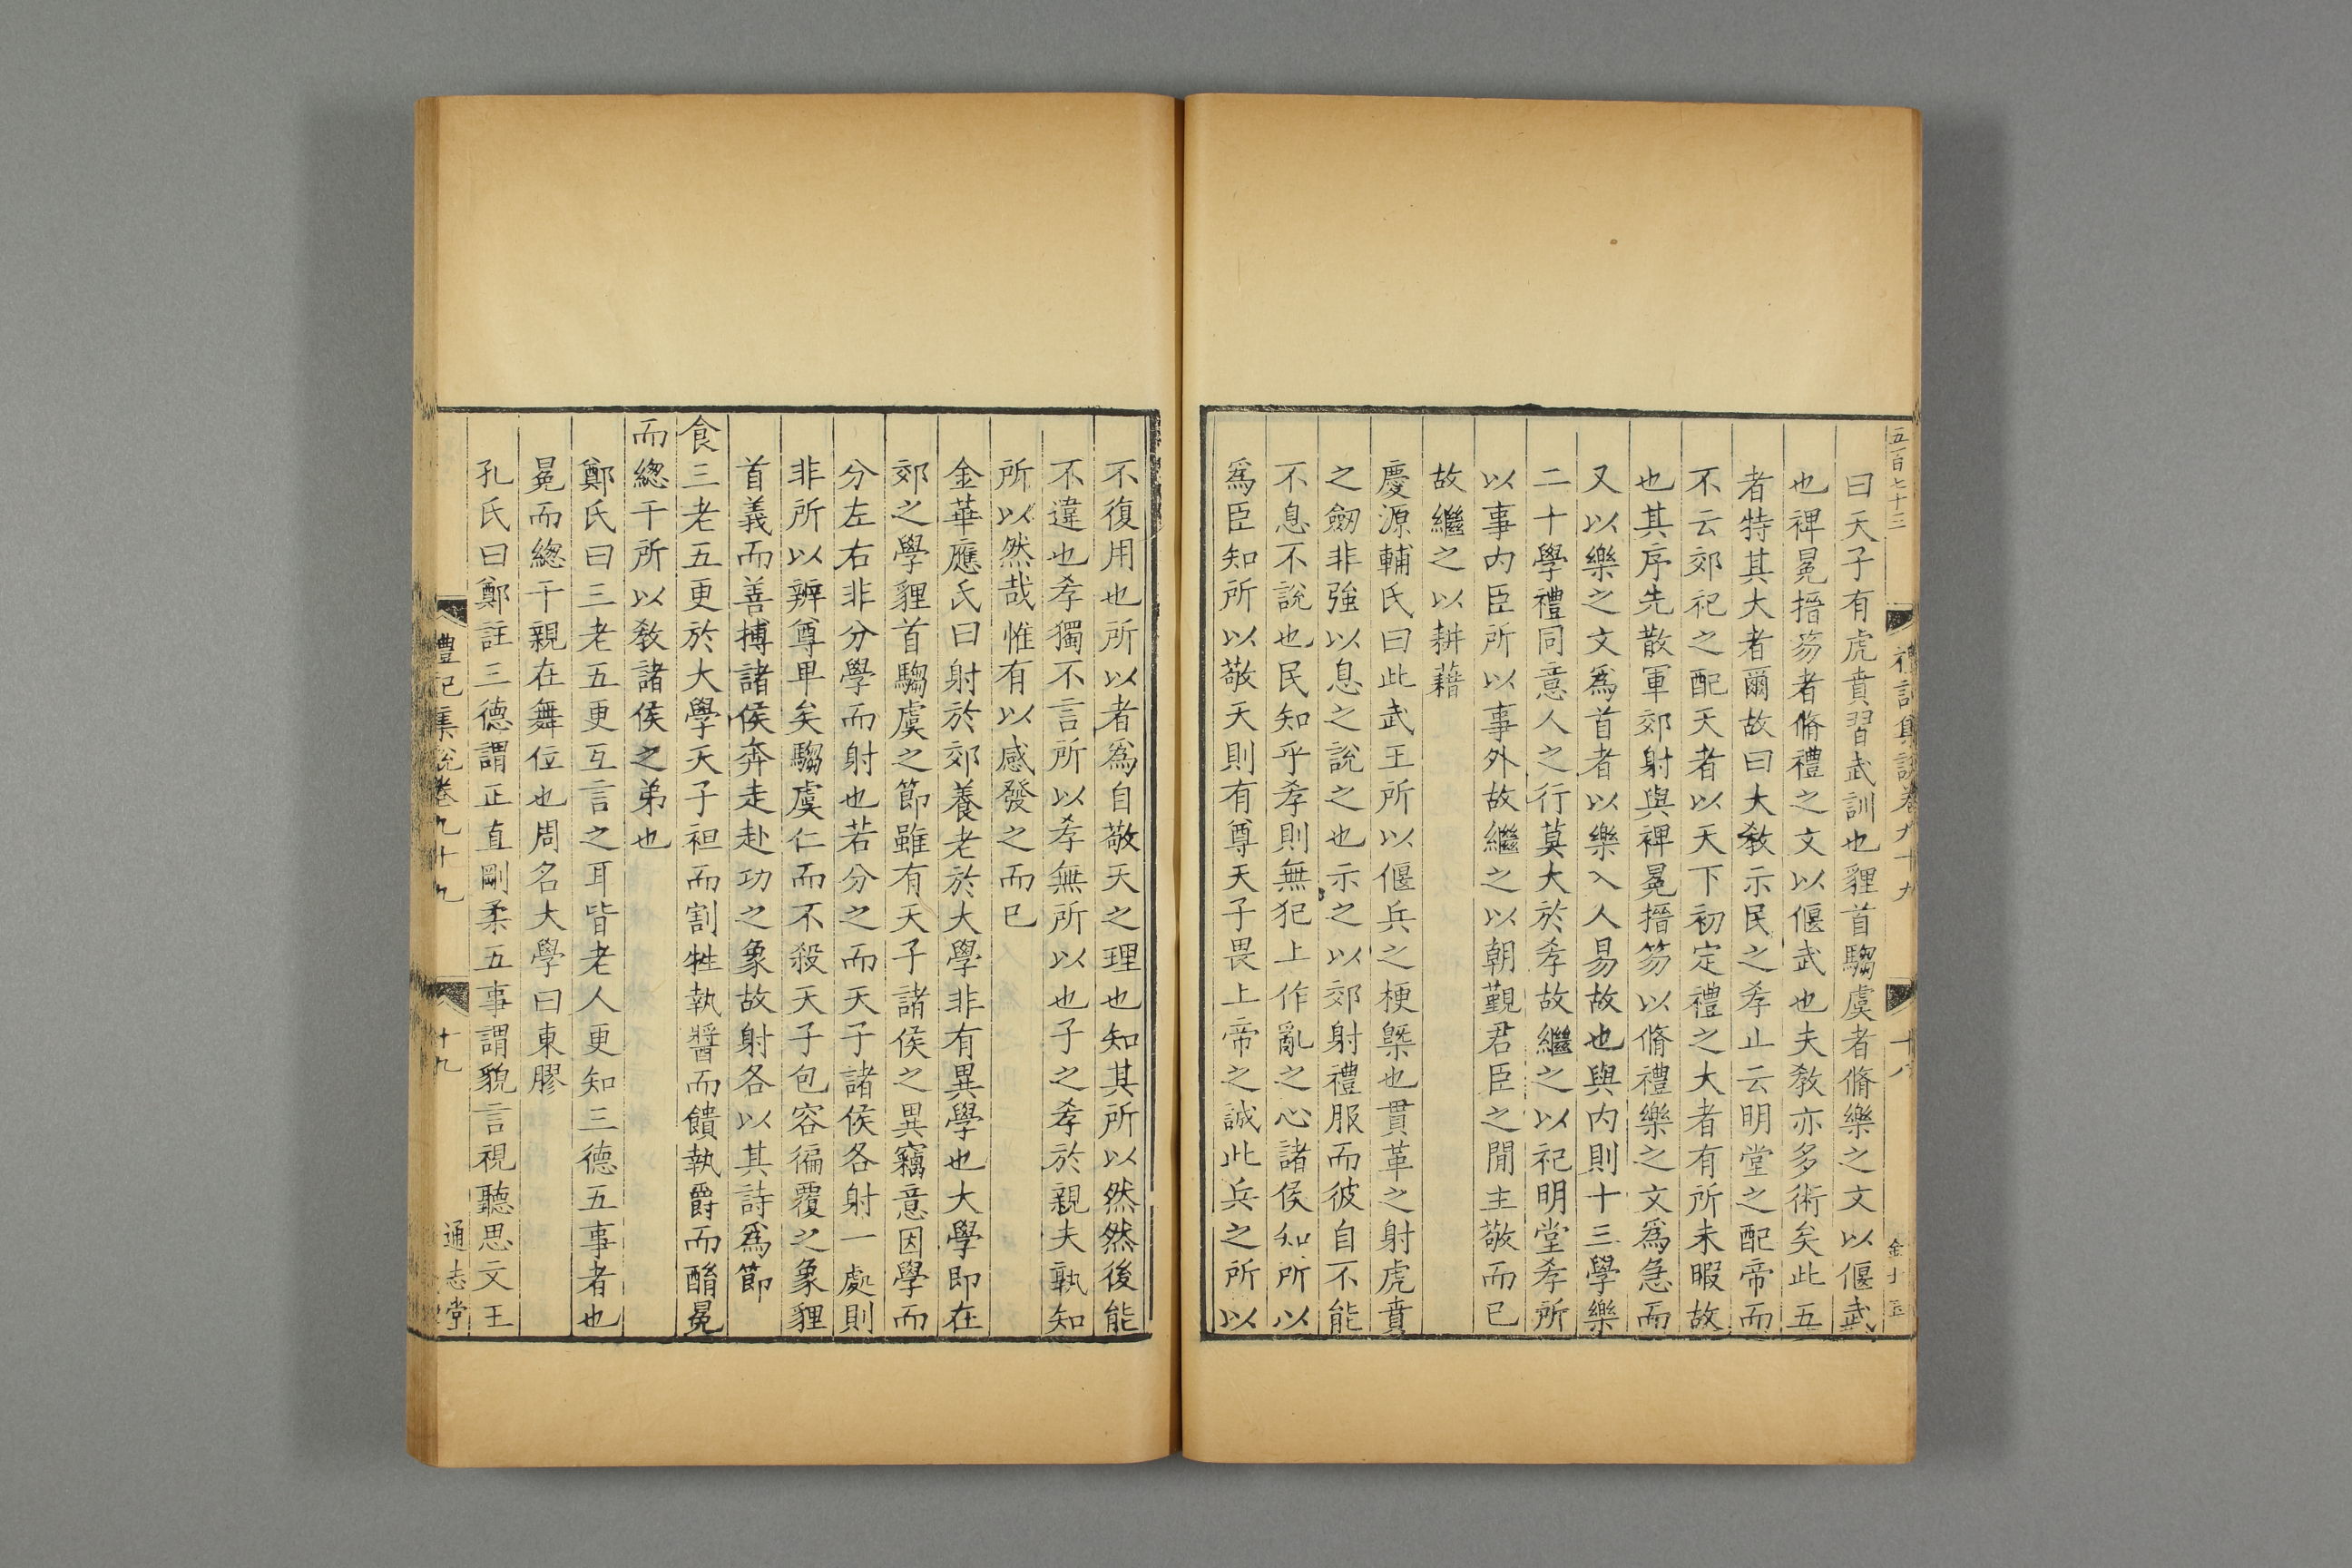 五百七十三
禮記集説卷九十九
十八
曰天子有虎賁習武訓也貍首騶虞者脩樂之文以偃武
也裨冕搢笏者脩禮之文以偃武也夫敎亦多術矣此五
者特其大者爾故曰大敎示民之孝止云明堂之配帝而
不云郊祀之配天者以天下初定禮之大者有所未暇故
也其序先散軍郊射與裨冕搢笏以脩禮樂之文爲急而
又以樂之文爲首者以樂入人易故也與内則十三學樂
二十學禮同意人之行莫大於孝故繼之以祀明堂孝所
以事内臣所以事外故繼之以朝覲君臣之閒主敬而已
故繼之以耕藉
慶源輔氏曰此武王所以偃兵之梗槩也貫革之射虎賁
之劒非強以息之說之也示之以郊射禮服而彼自不能
不息不說也民知乎孝則無犯上作亂之心諸侯知所以
爲臣知所以敬天則有尊天子畏上帝之誠此兵之所以
不復用也所以者爲自敬天之理也知其所以然然後能
不違也孝獨不言所以孝無所以也子之孝於親夫孰知
所以然哉惟有以感發之而已
金華應氏曰射於郊養老於大學非有異學也大學即在
郊之學貍首騶虞之節雖有天子諸侯之異竊意因學而
分左右非分學而射也若分之而天子諸侯各射一處則
非所以辨尊卑矣騶虞仁而不殺天子包容徧覆之象貍
首義而善搏諸侯奔走赴功之象故射各以其詩爲節
食三老五更於大學天子袒而割牲執醬而饋執爵而酳冕
而緫干所以敎諸侯之弟也
鄭氏曰三老五更互言之耳皆老人更知三德五事者也
冕而緫干親在舞位也周名大學曰東膠
孔氏曰鄭註三德謂正直剛柔五事謂貌言視聽思文王
禮記集説卷九十九
十九
通志堂